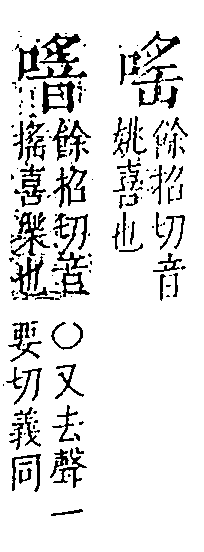 嗂
餘招切音
姚喜也
餘招切音
搖喜樂也
○又去聲一
要切義同